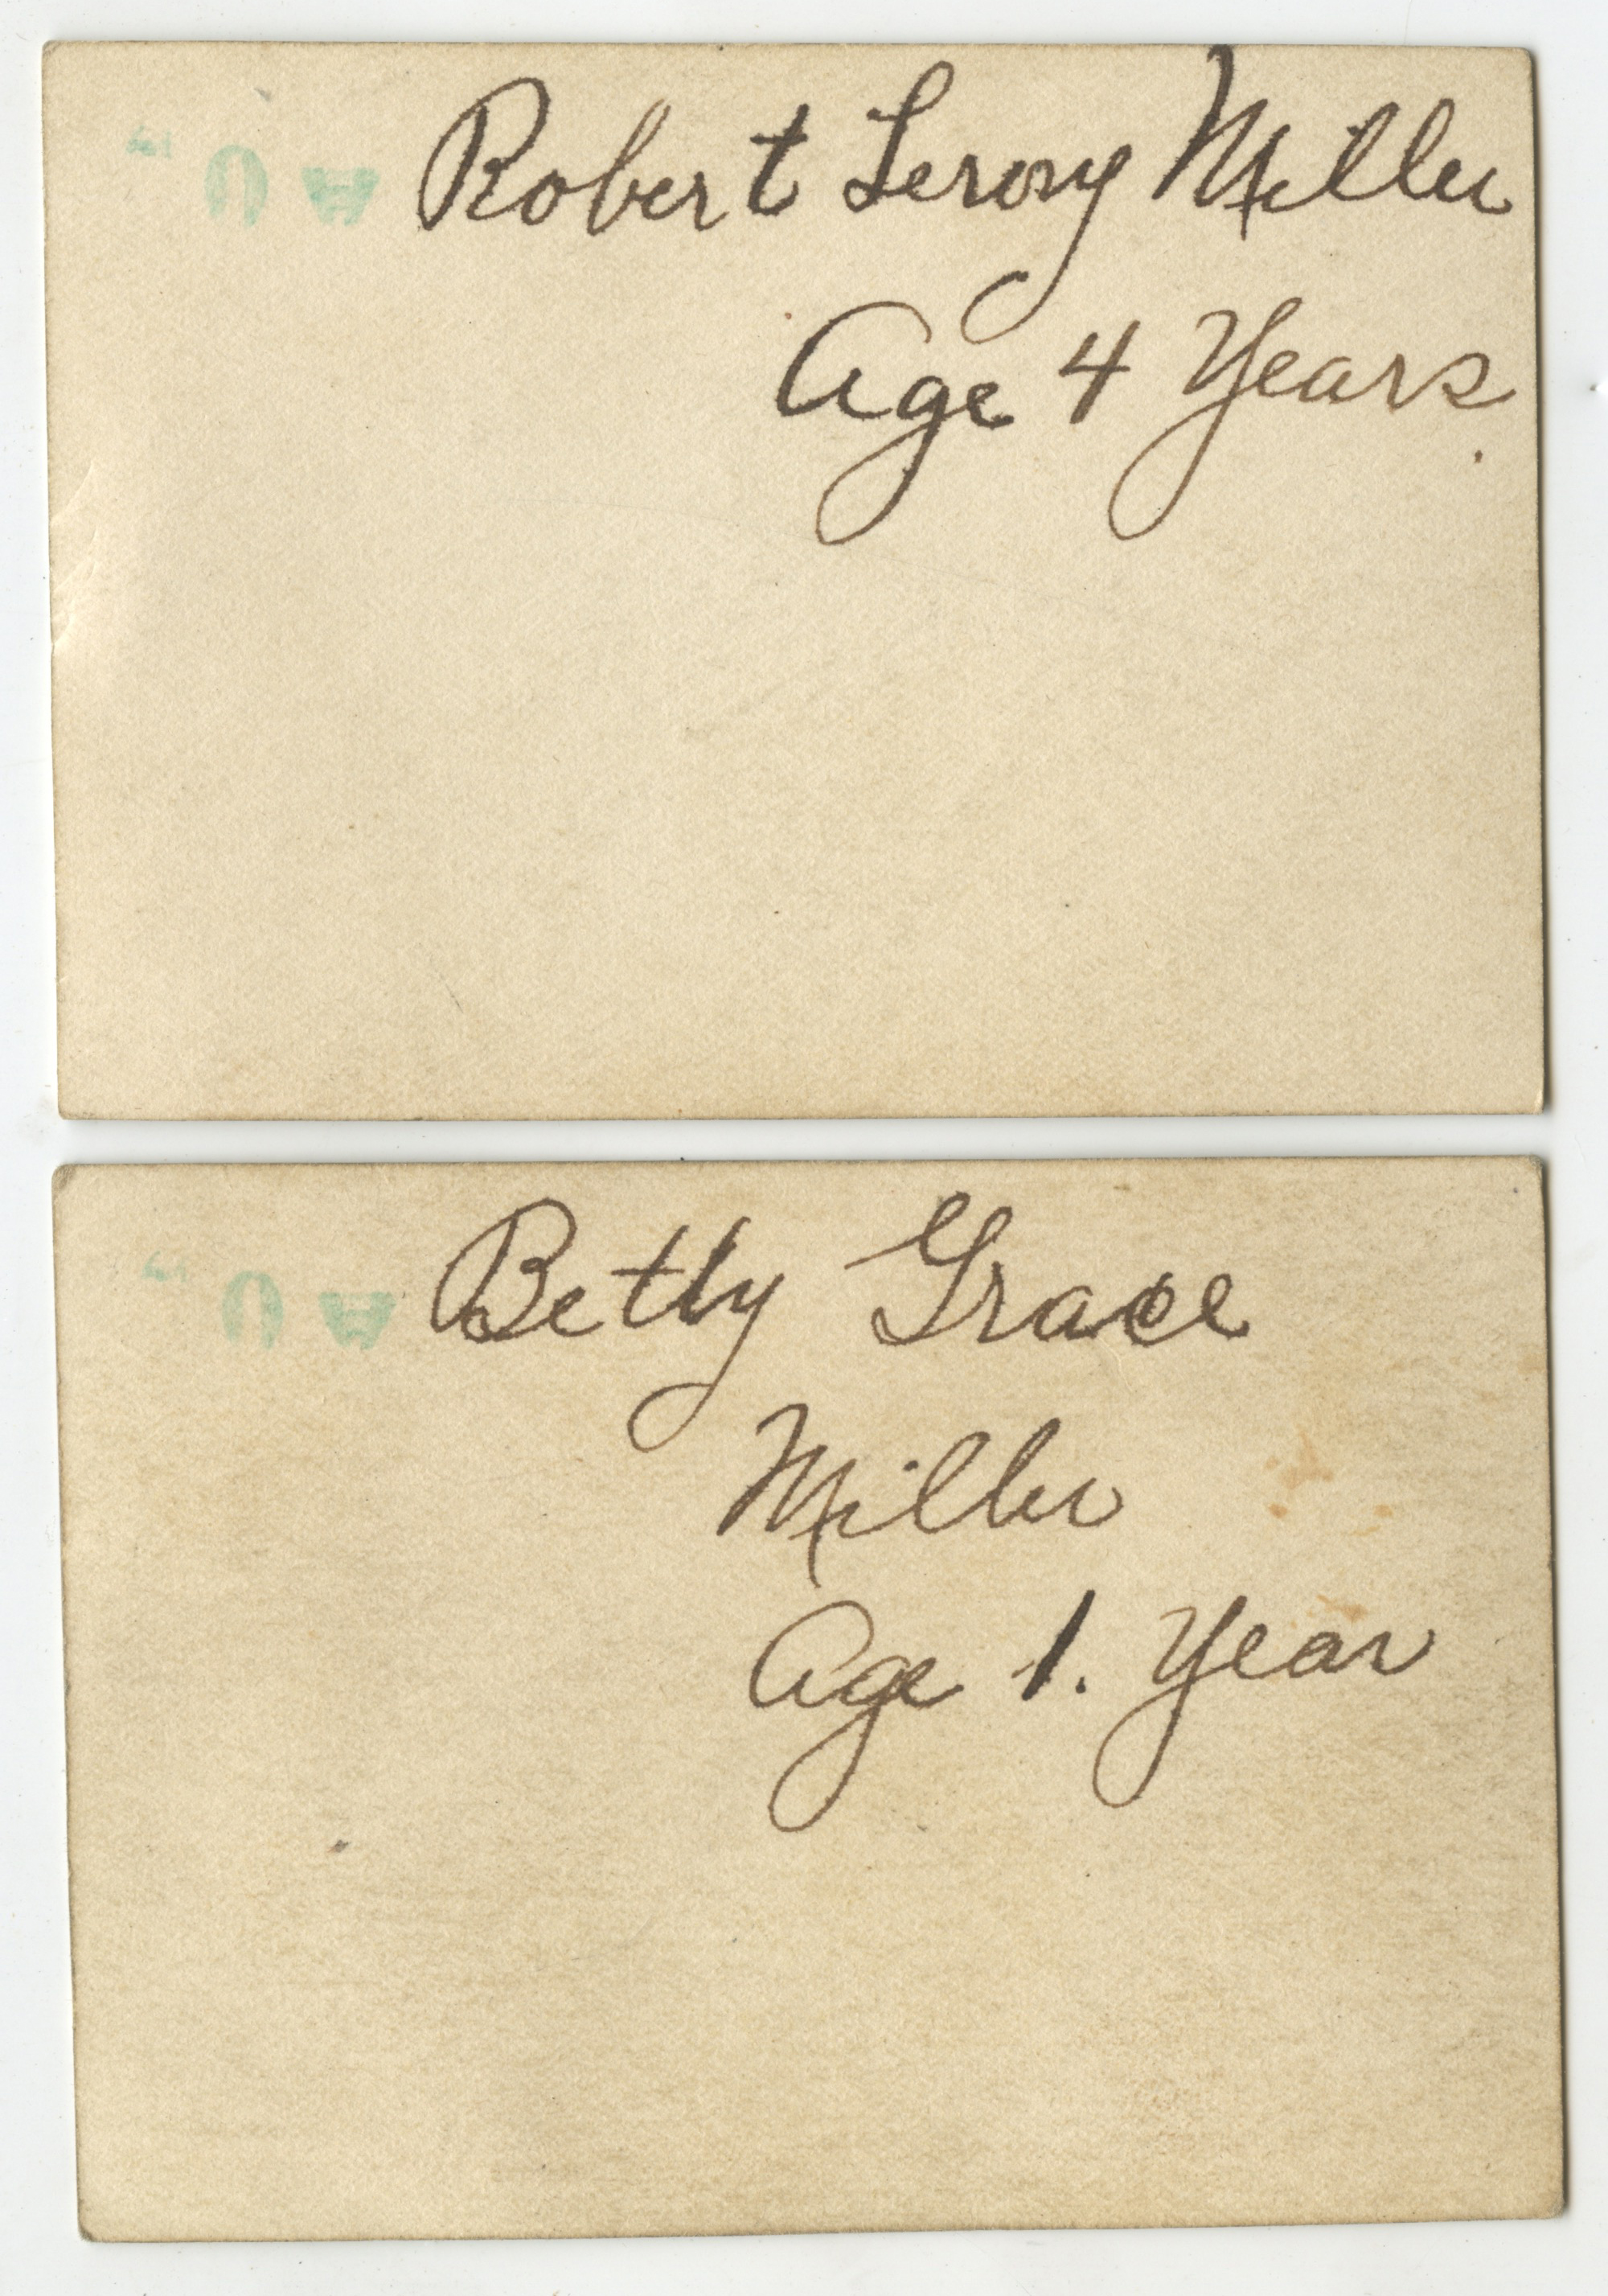 Robert Leroy Miller
Age 4 Years.
Betty Grace
Miller
Age 1. Year